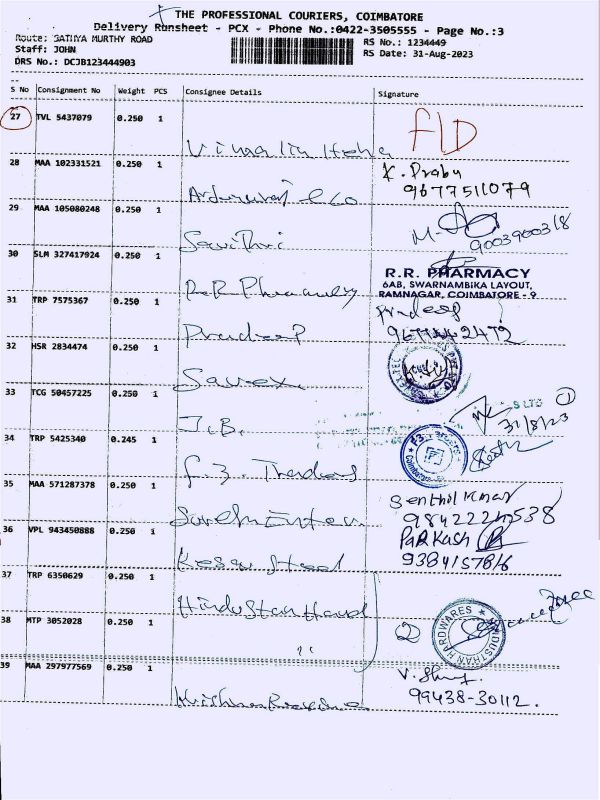 THE PROFESSIONAL COURIERS, COIMBATORE
Delivery Runsheet - PCX - Phone No.:0422-3505555 - Page No.:3
Route: SATHYA MURTHY ROAD
RS No.: 1234449
Staff: JOHN
RS Date: 31-Aug-2023
DRS No.: DCJB123444903
S No Consignment No Weight PCS Consignee Details Signature
27 TVL 5437079 0.250 1
28 MAA 102331521 0.250 1 K. Prabu
9677511079
29 MAA 105080248 0.250 1 Savithri
9003900318
30 SLM 327417924 0.250 1 R.R Pharmacy
R.R. PHARMACY
6AB, SWARNAMBIKA LAYOUT,
RAMNAGAR, COIMBATORE - 9
31 TRP 7575367 0.250 1 Pradeep Pradeep
32 HSR 2834474 0.250 1 Savex
33 TCG 50457225 0.250 1 J.B. 31/8/23
34 TRP 5425340 0.245 1 F.3. Traders
35 MAA 571287378 0.250 1 Senthil Kumar
36 VPL 943450888 0.250 1 Kesar Steel Parkash
9384157816
37 TRP 6350629 0.250 1 Hindustan Hard
38 MTP 3052028 0.250 1 " 2
HINDUSTHAN HARDWARES
39 MAA 297977569 0.250 1
99438-30112.